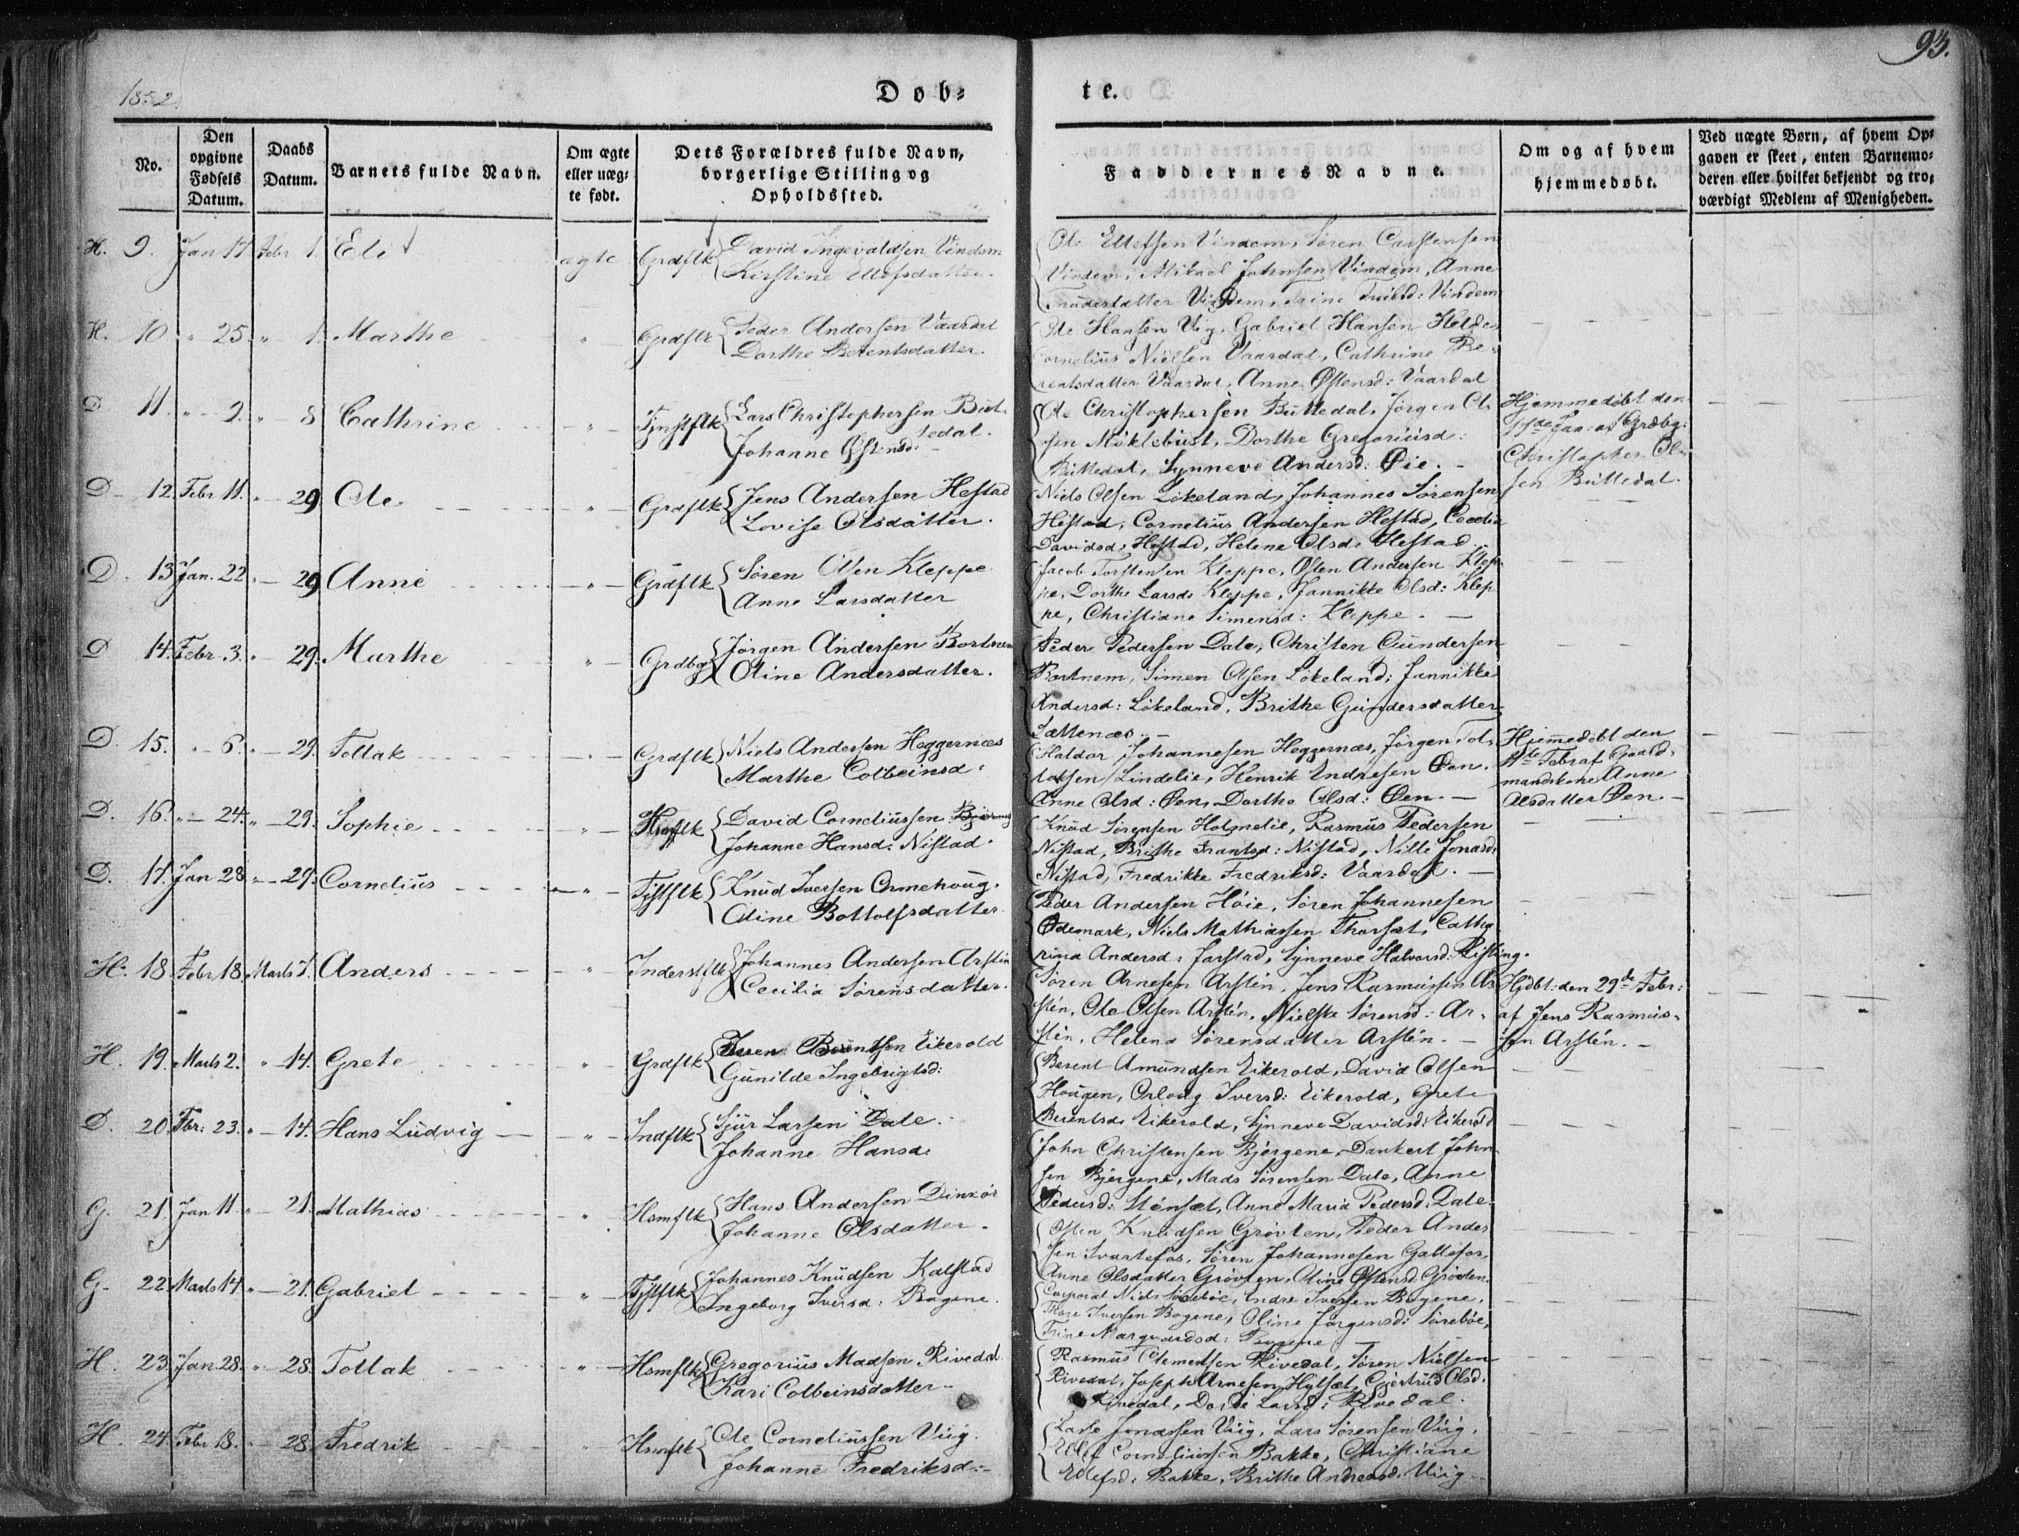 1852.
Dob-
te.
93.
No.
Den opgivne Fødsels Datum.
Daabs Datum.
Barnets fulde Navn.
Om ægte eller uægte født.
Dets Forældres fulde Navn, borgerlige Stilling og Opholdssted.
Faddernes Navne.
Om og af hvem hjemmedøbt.
Ved uægte Børn, af hvem Opgaven er skeet, enten Barnemoderen eller hvilket bekjendt og troværdigt Medlem af Menigheden.
H. 9. Jan 17 Febr 1. Eli ægte Grdflk David Ingevaldsen Vindem
Kirstine Ellefsdatter.
Ole Ellefsen Vindem, Søren Carstensen
Vindem, Mikael Johnsen Vindem, Anne
Vindem, Trine Vindem
H. 10 " 25. " 1. Marthe " Grdflk Peder Andersen Vaardal
Dorthe Berentsdatter.
Ole Hansen Vig, Gabriel Hansen Holde,
Cornelius Nielsen Vaardal, Cathrine Be-
rentsdatter Vaardal, Anne Østensd: Vaardal
D 11. " 9. " 8 Cathrine " Tjnstflk Lars Christophersen Büt-
tedal.
Johanne Østensd:
Ole Christophersen Büttedal, Jørgen Ol-
sen Møklebust, Dorthe Gregoriusd:
Büttedal, Synneve Andersd: Øie.
Hjemmedøbt den
Jan: af Grdbg:
Christopher Ol-
sen Büttedal.
D 12. Febr 11. " 29 Ole " Grdflk Jens Andersen Hestad
Lovise Olsdatter.
Niels Olsen Løkeland, Johannes Sørensen
Hestad, Cornelius Andersen Hestad, Cecelia
Davidsd: Hestad, Helene Olsd: Hestad
D. 13. Jan. 22. " 29 Anne " Grdflk Søren Olsen Kleppe
Anne Larsdatter
Jacob Torstensen Kleppe, Østen Andersen Klep-
pe, Dorthe Larsd: Kleppe, Jannikke Olsd: Klep-
pe, Christiane Simensd: Kleppe.
D 14. Febr 3. " 29. Marthe " Grdbg Jørgen Andersen Bortnem
Oline Andersdatter.
Peder Pedersen Dale, Christen Gundersen
Bortnem, Simen Olsen Løkeland, Jannikke
Andersd: Løkeland, Brithe Gundersdatter
Sættenæs.
D. 15. " 6. " 29. Tollak " Grdflk Niels Andersen Heggernæs
Marthe Colbeinsd:
Haldor Johannesen Heggernæs, Jørgen Tol-
laksen Lindelie, Henrik Endresen Øen.
Anne Olsd: Øen, Dorthe Olsd: Øen.
Hjemedøbt den
Febr af Gaard-
mandskone Anne
Olsdatter Øen.
D. 16. " 24. " 29. Sophie " David Corneliussen
Johanne Hansd: Nistad.
Knud Sørensen Holmelie, Rasmus Pedersen
Nistad, Brithe Frantsd: Nistad, Nille Jonasd:
Nistad, Fredrikke Fredriksd: Vaardal.
D. 17. Jan 28. " 29. Cornelius " Tjstflk Knud Iversen Ormehoug.
Oline Bottolfsdatter
Peder Andersen Høie, Søren Johannesen
Ødemark, Niels Mathiassen Thorset, Catha-
rina Andersd: Farstad, Synneve Halvorsd: Risting.
H. 18. Febr 18. Marts 7. Anders " Inderstflk Johannes Andersen Arstein
Cecilia Sørensdatter.
Søren Arnesen Arstén, Jens Rasmussen Ar-
stén, Ole Olsen Arstén, Nielske Sørensd: Ar-
stén, Helena Sørensdatter Arstén.
Hjdbt: den 29de Febr:
af Jens Rasmus-
sen Arstén.
H. 19. Marts 2. " 14. Grete " Grdflk Berentsen Eikerold
Gunilde Ingebrigtsd:
Berent Amundsen Eikerold, David Olsen
Hougen, Arloug Iversd: Eikerold, Grete
Berentsd: Eikerold, Synneve Davidsd: Eikerold
D. 20. Fbr: 23. " 14. Hans Ludvig " Indflk Sjur Larsen Dale.
Johanne Hansd:
John Christensen Bjørgene, Dankert John-
sen Bjørgene, Mads Sørensen Dale, Anne
Pedersd: Stensæt, Anne Maria Pedersd: Dale
G. 21. Jan 11. " 21. Mathias " Hsmflk Hans Andersen
Johanne Olsdatter.
Østen Knudsen Grøvlen, Peder Ander-
sen Svartefos, Søren Johannesen
Anne Olsdatter Grøvlen, Oline Østensd: Grøvlen
G. 22. Marts 14. " 21. Gabriel " Tjstflk Johannes Knudsen Kalstad
Ingeborg Iversd: Bogene.
Corporal Niels Sørebøe, Endre Iversen Bogene,
Thore Iversen Bogene, Oline Jørgensd: Sørebøe,
Trine Marqvardsd: Bogene
H. 23. Jan 28. " 28. Tollak " Hsmflk Gregorius Madsen Rivedal
Kari Colbeinsdatter
Rasmus Clementsen Rivedal, Søren Nielsen
Rivedal, Joseph Arnesen Hylset, Gjertrud Olsd.
Rivedal, Dorthe Larsd: Rivedal.
H. 24. Febr 18. " 28. Fredrik " Hsmflk Ole Corneliussen Viig.
Johanne Fredriksd:
Lasse Jonassen Viig, Lars Sørensen Viig,
Ellef Corneliussen Bakke, Christiane
Ellefsd: Bakke, Brithe Andreasd: Viig